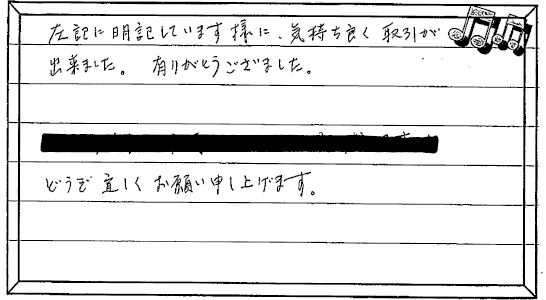 左記に明記しています様に、気持ち良く取引が
出来ました。有りがとうございました。
どうぞ宜しくお願い申し上げます。